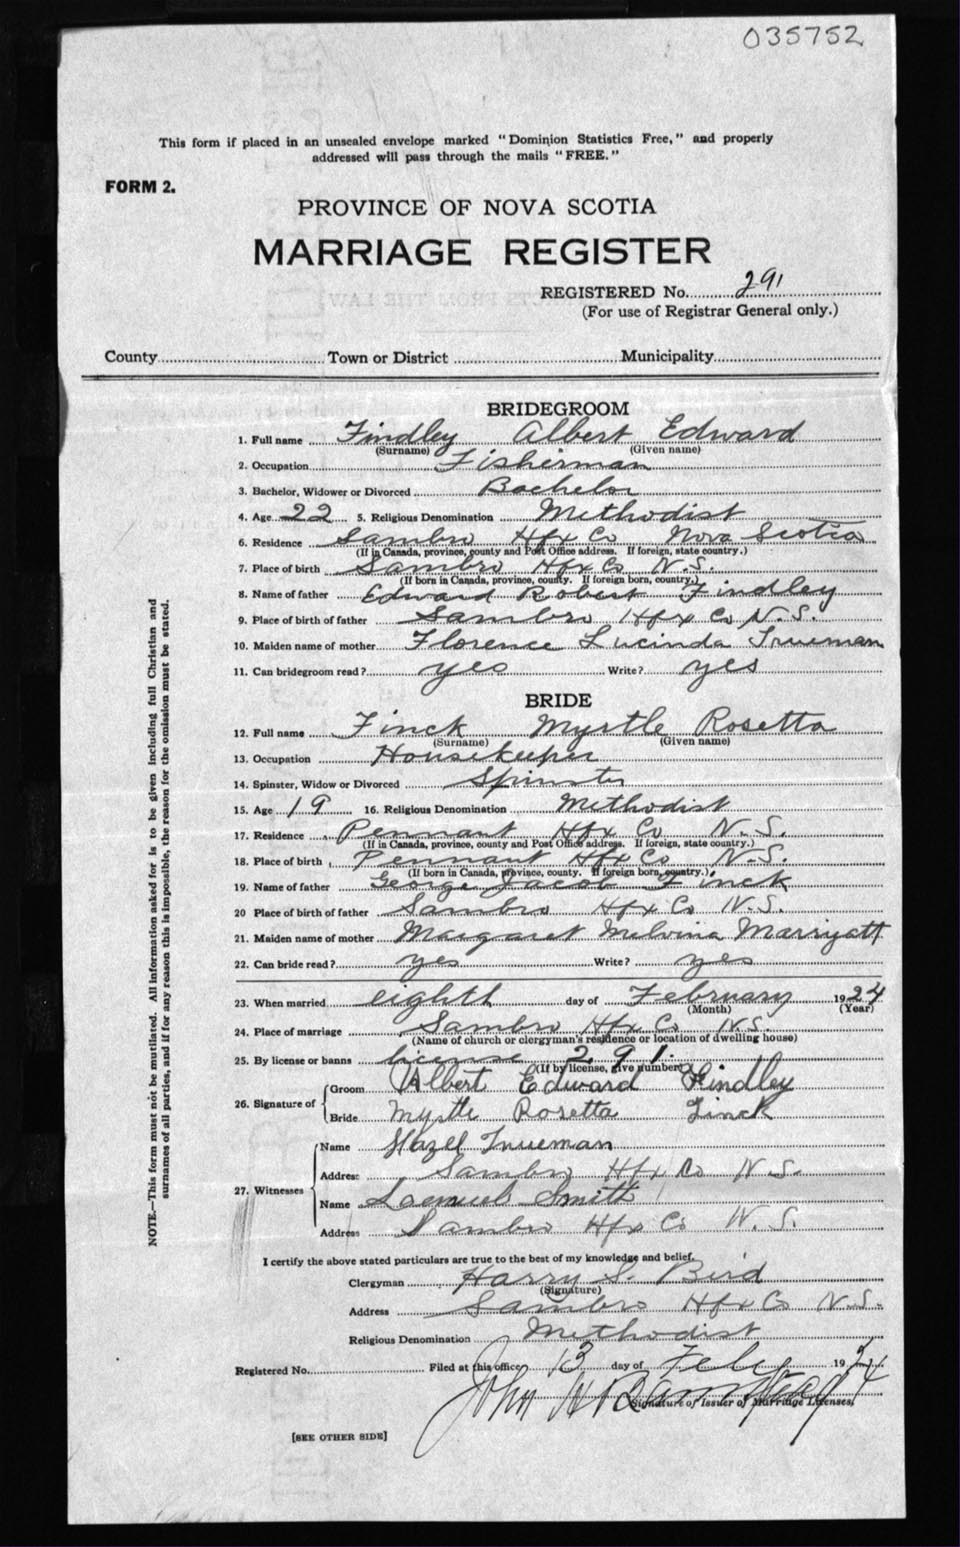 035752
This form if placed in an unsealed envelope marked "Dominion Statistics Free," and properly
addressed will pass through the mails "FREE."
FORM 2.
PROVINCE OF NOVA SCOTIA
MARRIAGE REGISTER
REGISTERED No. 291
(For use of Registrar General only.)
County Town or District Municipality
BRIDEGROOM
1. Full name Findley Albert Edward
(Surname) (Given name)
2. Occupation Fisherman
3. Bachelor, Widower or Divorced Bachelor
4. Age 22 5. Religious Denomination Methodist
6. Residence Sambro Hfx Co Nova Scotia
(If in Canada, province, county and Post Office address. If foreign, state country.)
7. Place of birth Sambro Hfx Co N.S.
(If born in Canada, province, county. If foreign born, country.)
8. Name of father Edward Robert Findley
9. Place of birth of father Sambro Hfx Co N.S.
10. Maiden name of mother Florence Lucinda Trueman
11. Can bridegroom read? yes Write? yes
BRIDE
12. Full name Finck Myrtle Rosetta
(Surname) (Given name)
13. Occupation Housekeeper
14. Spinster, Widow or Divorced Spinster
15. Age 19 16. Religious Denomination Methodist
17. Residence Pennant Hfx Co N.S.
(If in Canada, province, county and Post Office address. If foreign, state country.)
18. Place of birth Pennant Hfx Co N.S.
(If born in Canada, province, county. If foreign born, country.)
19. Name of father George Jacob Finck
20 Place of birth of father Sambro Hfx Co N.S.
21. Maiden name of mother Margaret Melvina Marryatt
22. Can bride read? yes Write? yes
23. When married eighth day of February 1924
(Month) (Year)
24. Place of marriage Sambro Hfx Co N.S.
(Name of church or clergyman's residence or location of dwelling house)
25. By license or banns license 291.
(If by license, give number)
26. Signature of Groom Albert Edward Findley
Bride Myrtle Rosetta Finck
27. Witnesses Name Hazel Trueman
Address Sambro Hfx Co N.S.
Name Samuel Smith
Address Sambro Hfx Co N.S.
I certify the above stated particulars are true to the best of my knowledge and belief.
Clergyman Harry S. Bird
(Signature)
Address Sambro Hfx Co N.S.
Religious Denomination Methodist
Registered No. Filed at this office 13 day of Feby 1924
John H
Signature of Issuer of Marriage Licenses.
[SEE OTHER SIDE]
NOTE.—This form must not be mutilated. All information asked for is to be given including full Christian and
surnames of all parties, and if for any reason this is impossible, the reason for the omission must be stated.